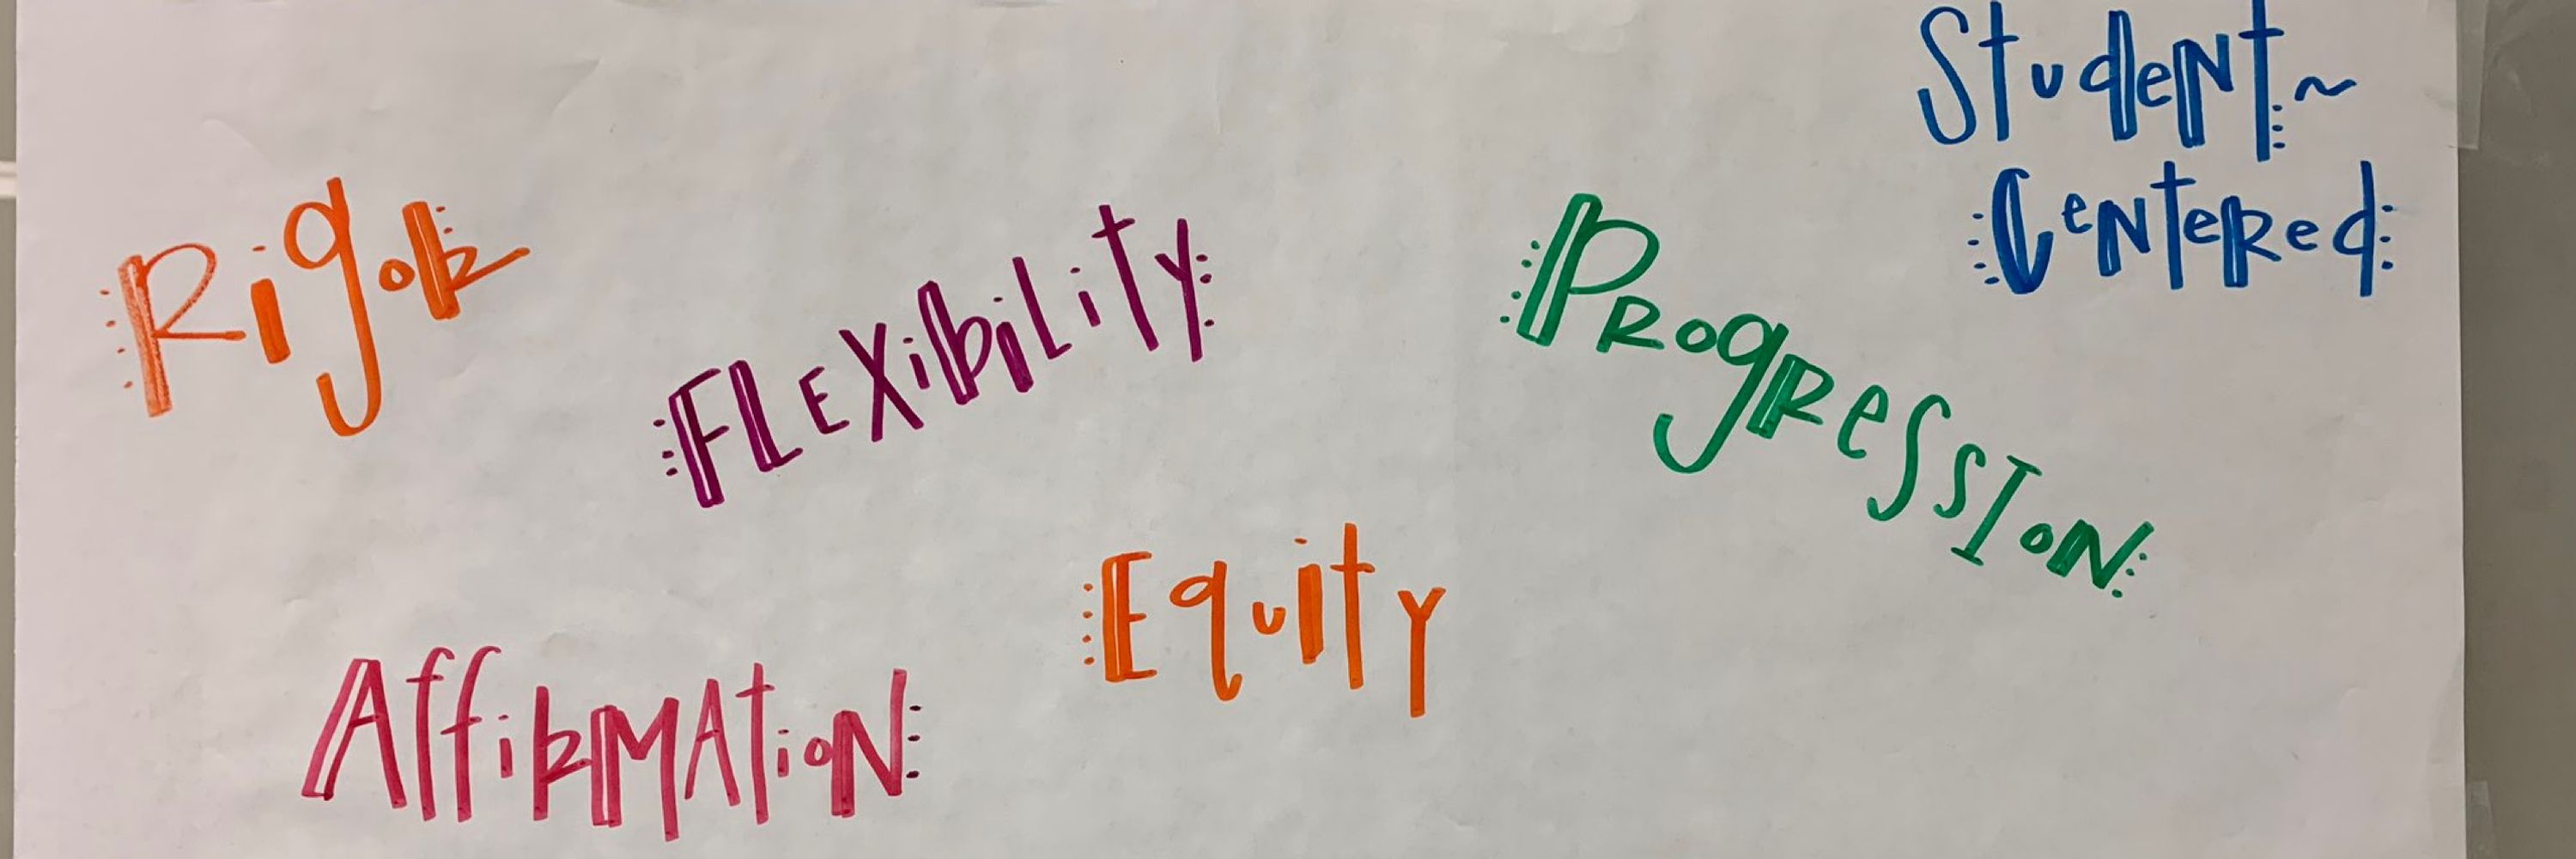 Student~
Centered
Rigor
Flexibility
Progression
Equity
Affirmation